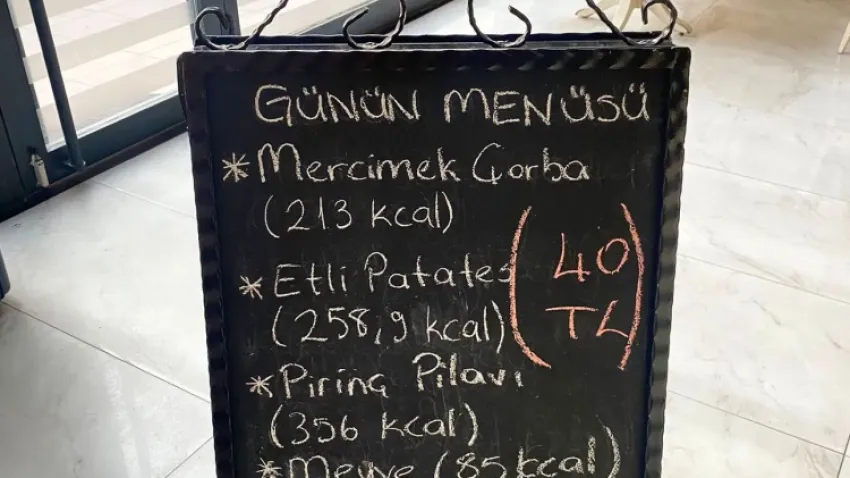 GÜNÜN MENÜSÜ
* Mercimek Çorba
(213 kcal)
* Etli Patates
(258,9 kcal)
(40
TL)
* Pirinç Pilavı
(356 kcal)
* Meyve (85 kcal)